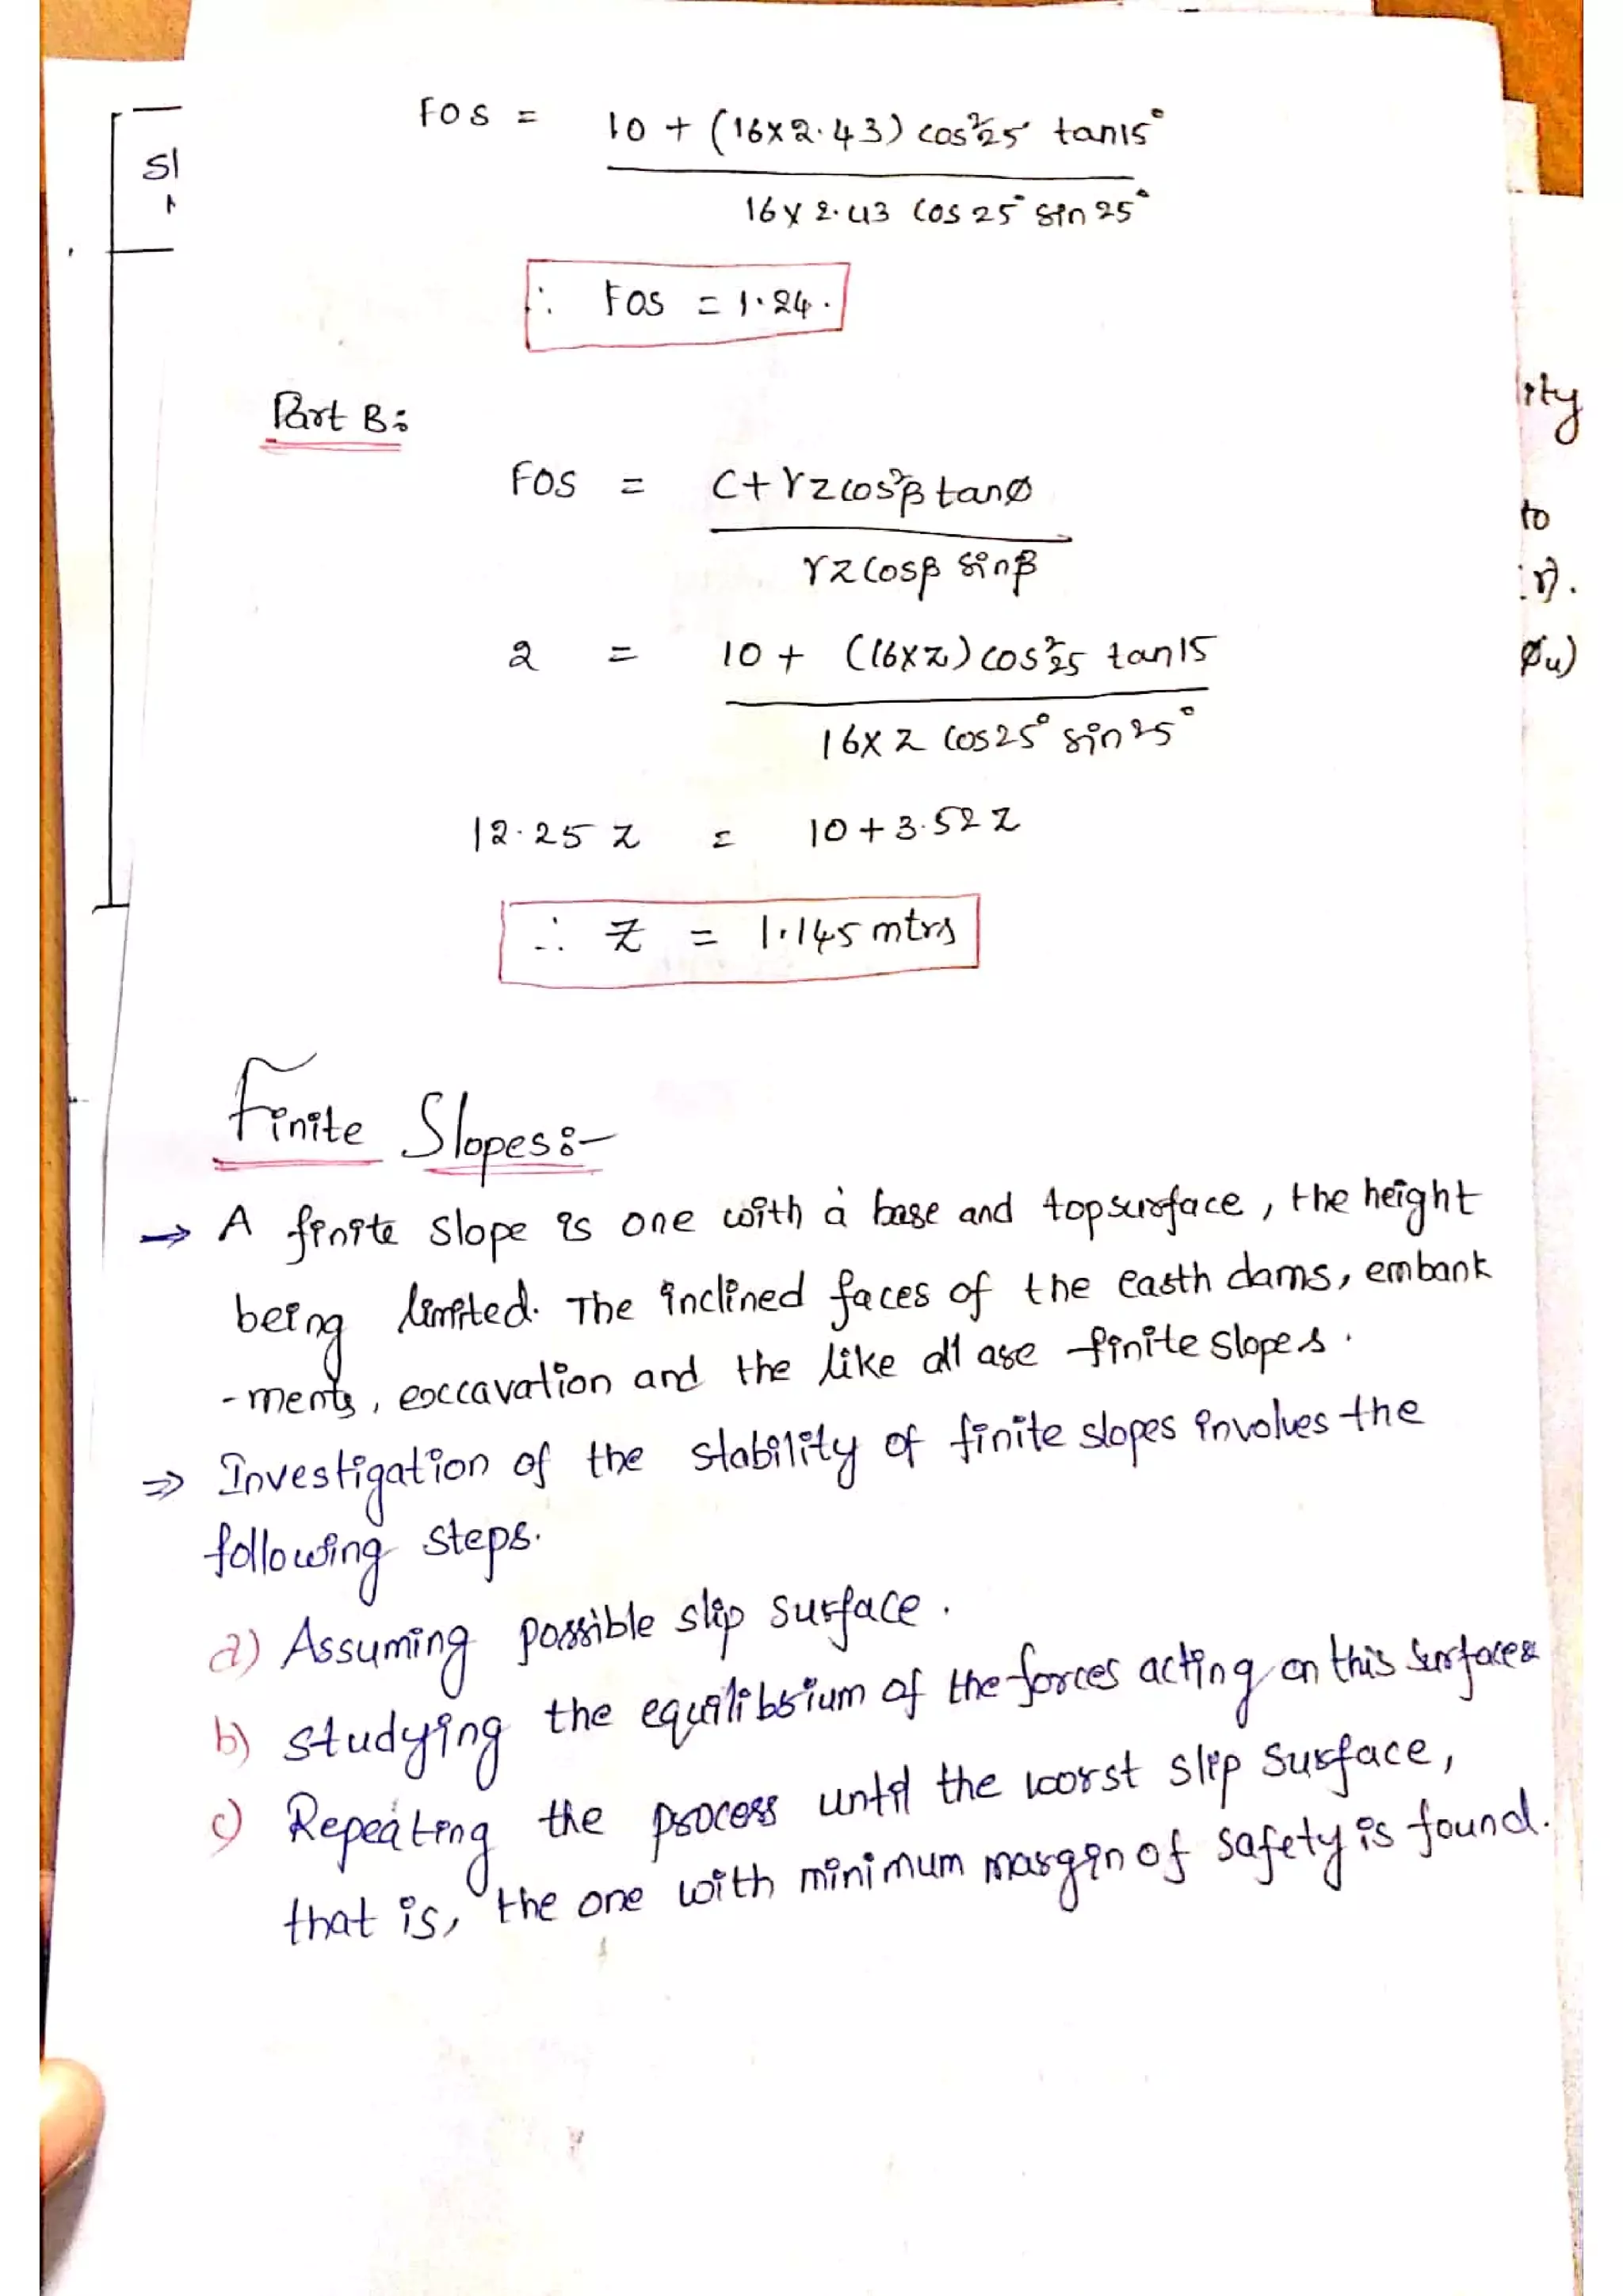 FOS = 10 + (16x2.43) cos²25° tan15°
16x2.43 cos25° sin25°
Sl
∴ FOS = 1.24.
ity
Part B:
FOS = C+γzcos²β tanø
γzcosβ sinβ
to
r).
2 = 10 + (16xz) cos²25 tan15
øu)
16xz cos25° sin25°
12.25 z = 10+3.52 z
∴ z = 1.145 mtrs
Finite Slopes:-
→ A finite slope is one with a base and topsurface, the height
being limited. The inclined faces of the earth dams, embank
-ments, excavation and the like all are finite slopes.
⇒ Investigation of the stability of finite slopes involves the
following steps.
a) Assuming possible slip surface.
b) studying the equilibrium of the forces acting on this surfaces
c) Repeating the process until the worst slip surface,
that is, the one with minimum margin of safety is found.